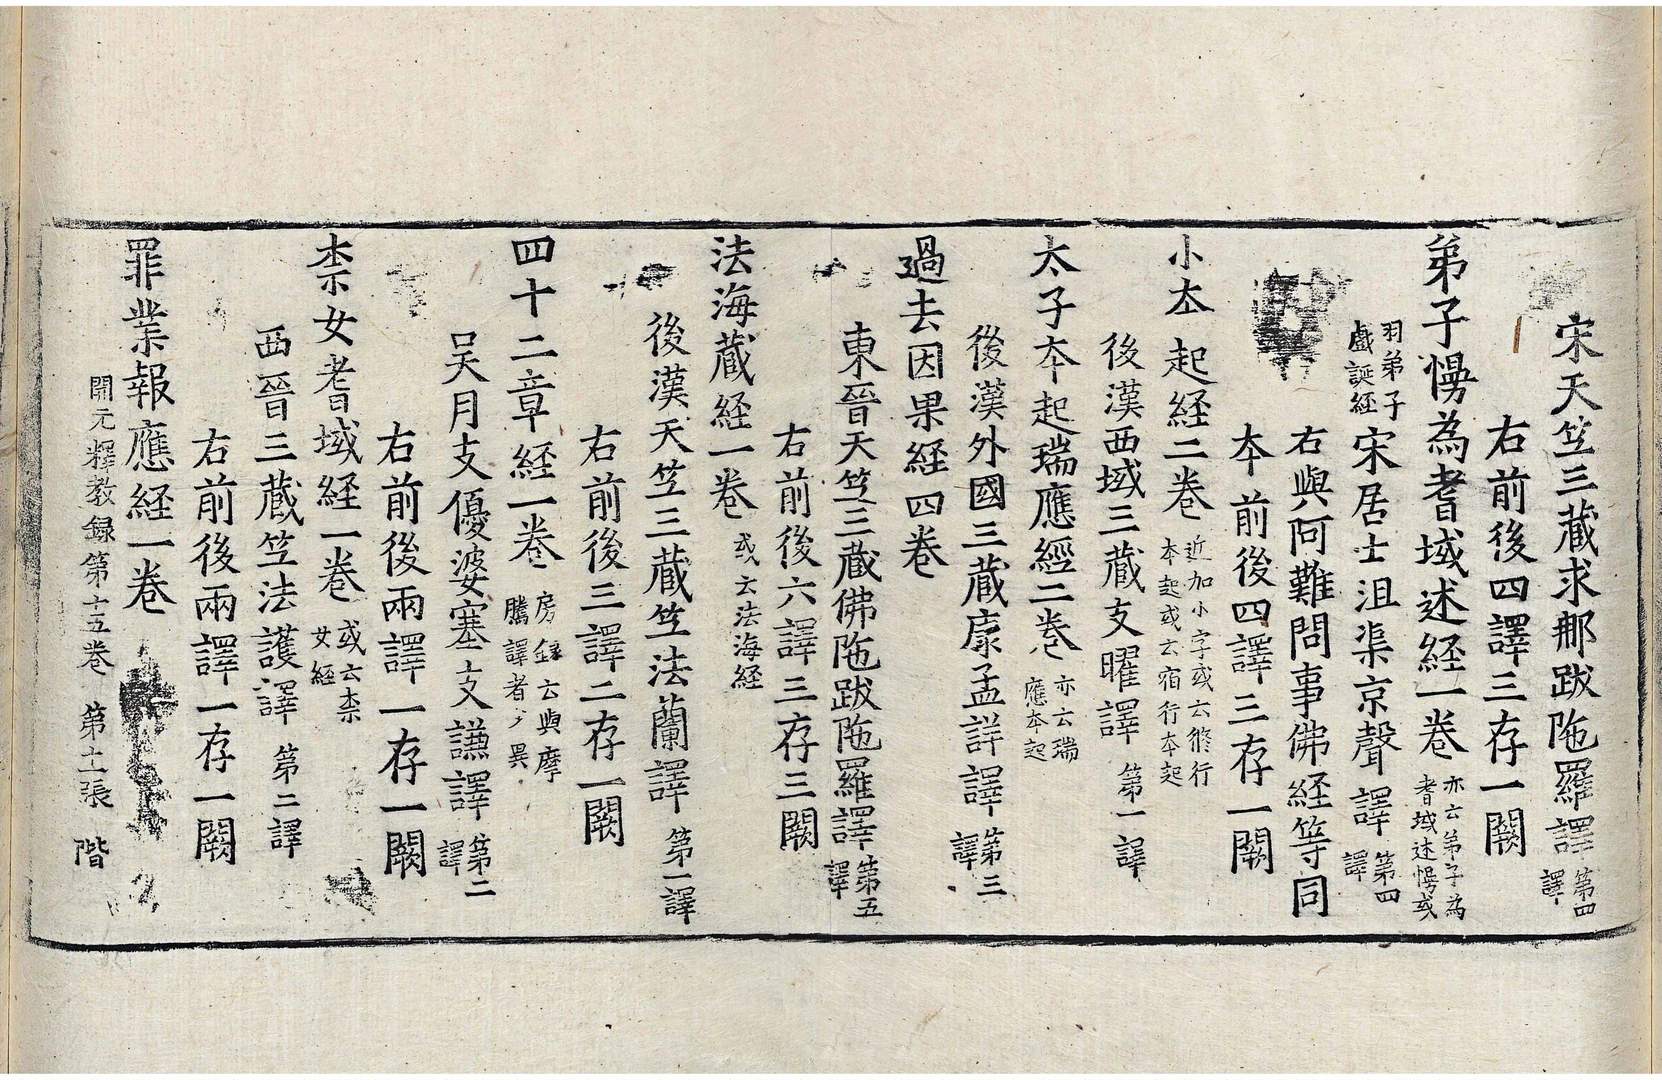 宋天竺三藏求那跋陁羅譯第四譯
右前後四譯三存一闕
弟子慢為耆域述経一卷亦云弟子為耆域述慢或
羽弟子戲誕経宋居士沮渠京聲譯第四譯
右與阿難問事佛経等同
夲前後四譯三存一闕
小夲起経二卷近加小字或云修行本起或云宿行夲起
後漢西域三藏支曜譯第一譯
太子夲起瑞應經二卷亦云瑞應夲起
後漢外國三藏康孟詳譯第三譯
過去因果経四卷
東晉天竺三藏佛陁跋陁羅譯第五譯
右前後六譯三存三闕
法海藏経一卷或云法海経
後漢天竺三藏竺法蘭譯第一譯
右前後三譯二存一闕
四十二章経一卷房録云與摩騰譯者少異
吴月支優婆塞支謙譯第二譯
右前後兩譯一存一闕
柰女耆域経一卷或云柰女経
西晉三藏竺法護譯第二譯
右前後兩譯一存一闕
罪業報應経一卷
開元釋教録第十五卷 第十一張 階